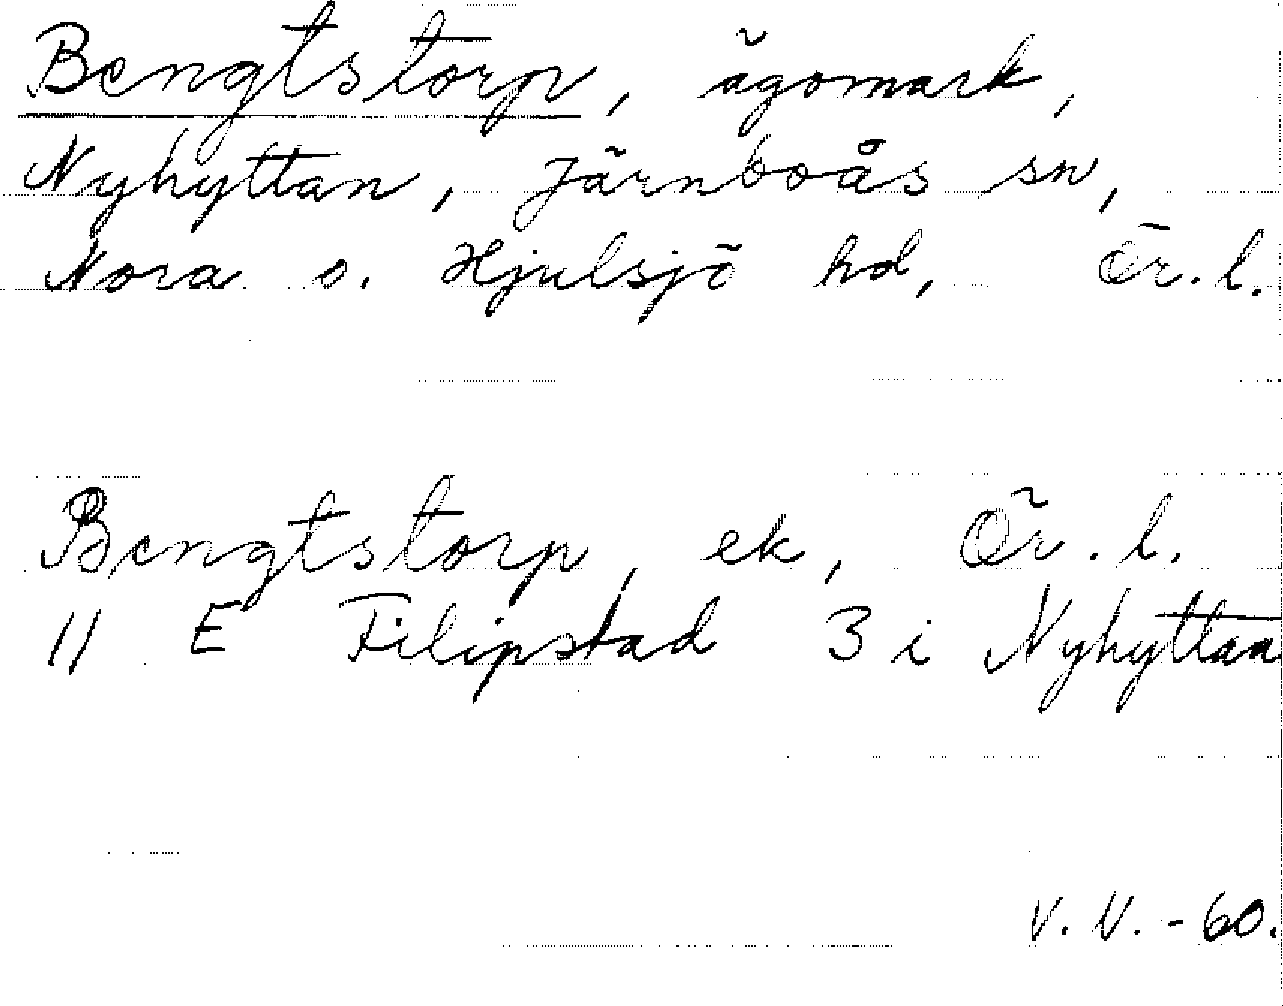 Bengtstorp, ägomark,
Nyhyttan, Järnboås sn,
Nora o. Hjulsjö hd, Ör. l.
Bengtstorp, ek, Ör. l.
11 E Filipstad 3 i Nyhyttan
V. V. -60.